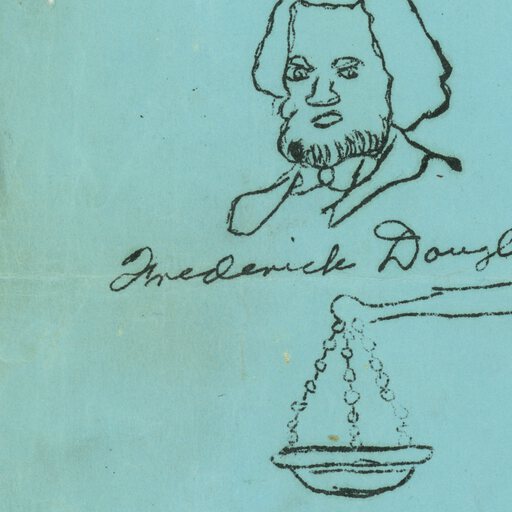 Frederick Dougl